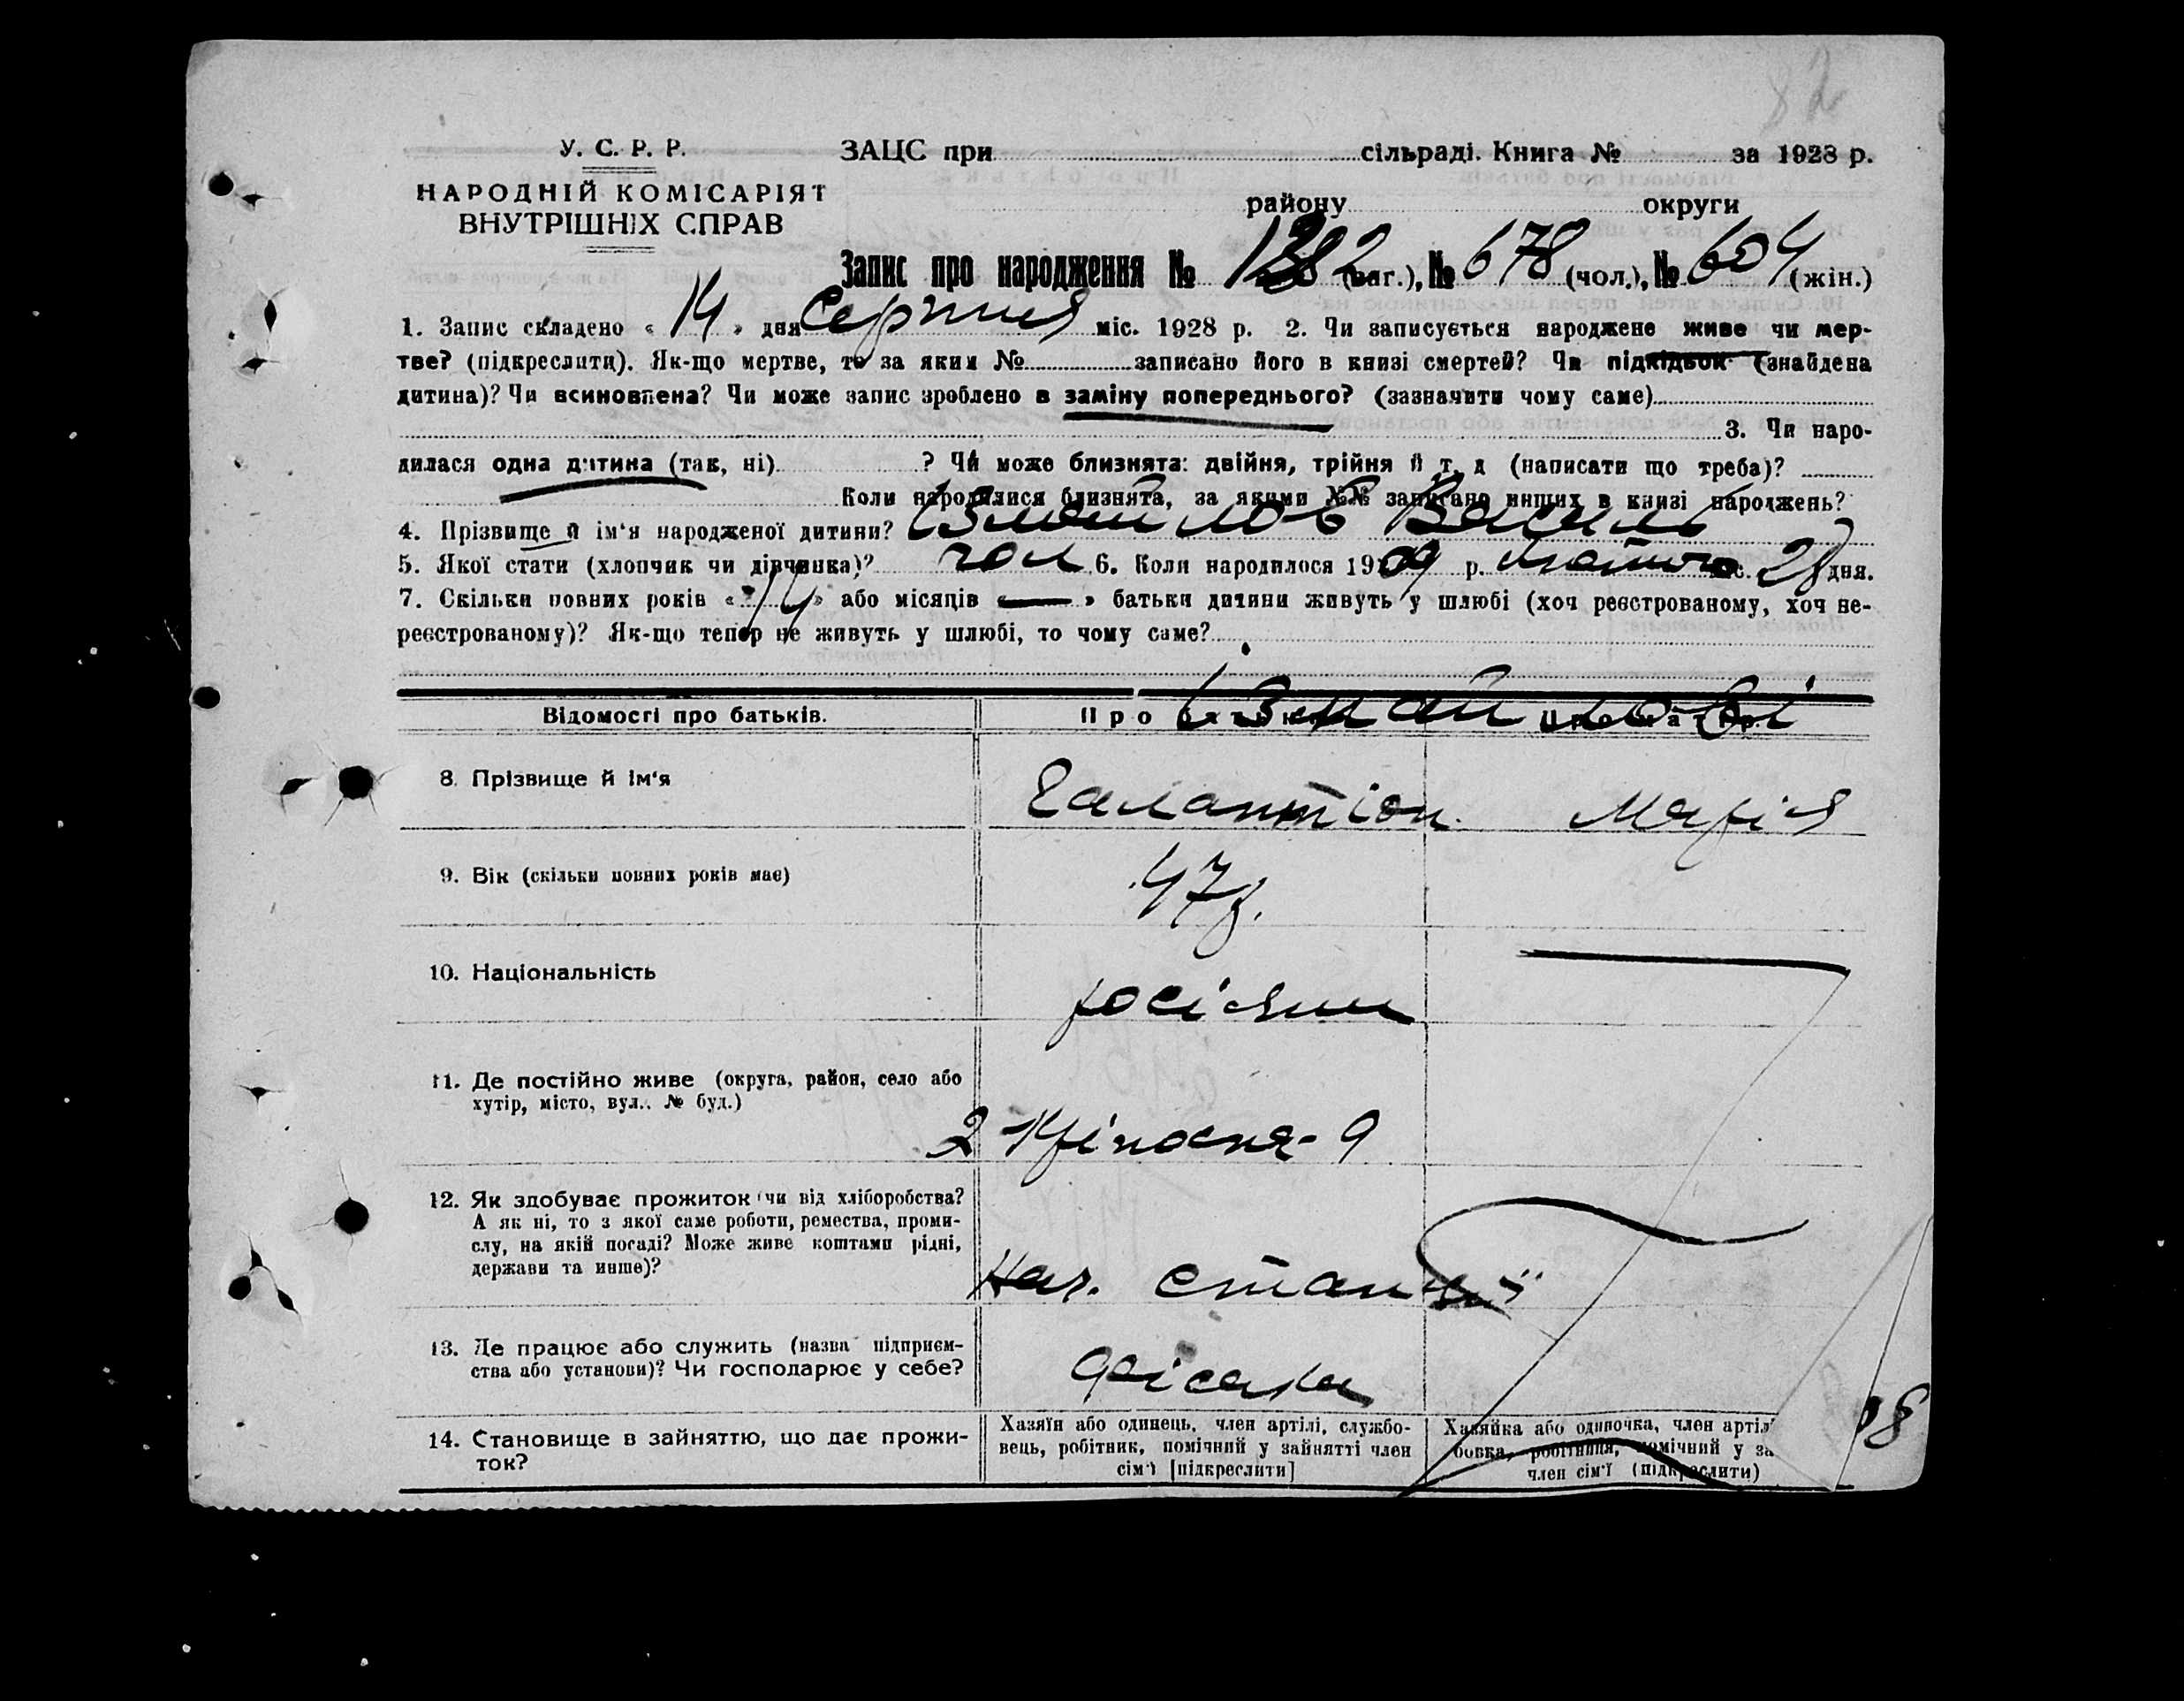 82
У. С. Р. Р.
НАРОДНІЙ КОМІСАРІЯТ
ВНУТРІШНІХ СПРАВ
ЗАЦС при сільраді. Книга № за 1928 р.
району округи
Запис про народження № 1282 (заг.), № 678 (чол.), № 604 (жін.)
1. Запис складено « 14 » дня Серпня міс. 1928 р. 2. Чи записується народжене живе чи мер-
тве? (підкреслити). Як-що мертве, то за яким № записано його в книзі смертей? Чи підкідьок (знайдена
дитина)? Чи всиновлена? Чи може запис зроблено в заміну попереднього? (зазначити чому саме)
3. Чи наро-
дилася одна дитина (так, ні) ? Чи може близнята: двійня, трійня й т. д (написати що треба)?
Коли народилися близнята, за якими №№ записано инших в книзі народжень?
4. Прізвище й ім'я народженої дитини? Ізмайлов Василь
5. Якої стати (хлопчик чи дівчинка)? чол 6. Коли народилося 1909 р. Лютого міс. 28 дня.
7. Скільки повних років « 14 » або місяців « — » батьки дитини живуть у шлюбі (хоч реєстрованому, хоч не-
реєстрованому)? Як-що тепер не живуть у шлюбі, то чому саме?
Відомості про батьків. Про батька Про матір.
Ізмайлові
8. Прізвище й ім'я Галактіон Марія
9. Вік (скільки повних років має) 47 р.
10. Національність росіянин
11. Де постійно живе (округа, район, село або
хутір, місто, вул.. № буд.)
2 Кріпосня - 9
12. Як здобуває прожиток (чи від хліборобства?
А як ні, то з якої саме роботи, ремества, проми-
слу, на якій посаді? Може живе коштами рідні,
держави та инше)?
Нач. станції
13. Де працює або служить (назва підприєм-
ства або установи)? Чи господарює у себе?
14. Становище в зайняттю, що дає прожи-
ток?
Хазяїн або одинець, член артілі, службо-
вець, робітник, помічний у зайнятті член
сім'ї [підкреслити]
Хазяйка або одиночка, член артілі
бовка, робітниця, помічний у за
член сім'ї (підкреслити)